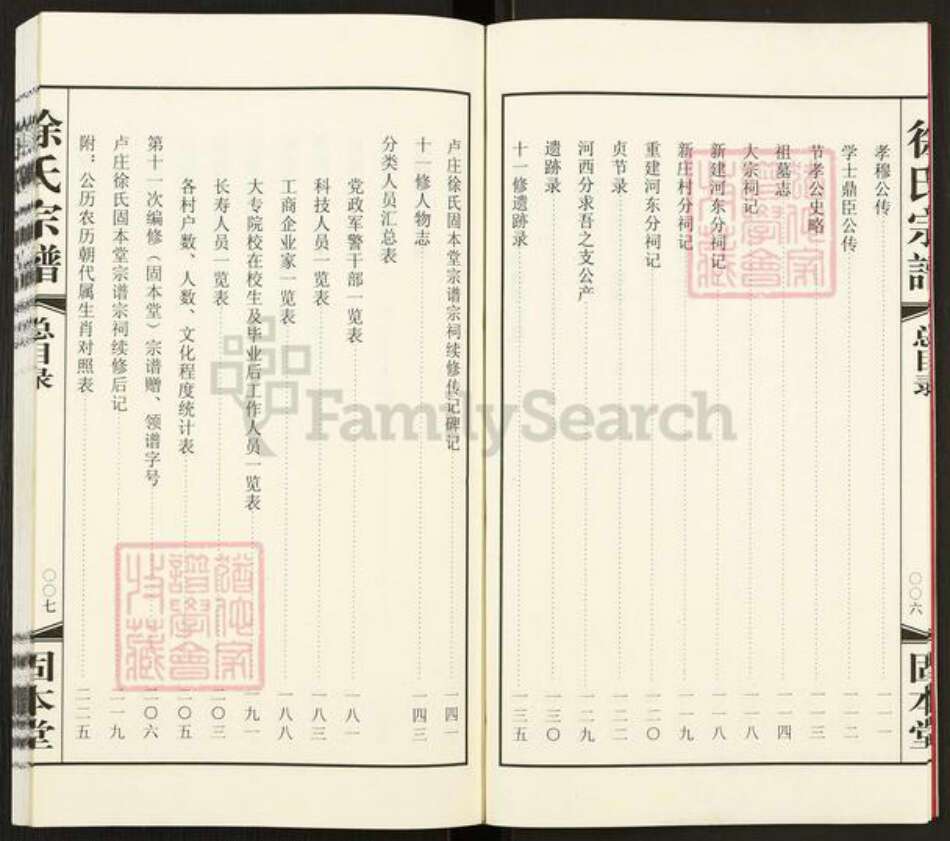 徐氏宗谱 总目录 〇〇六 固本堂
孝穆公传 一一一
学士鼎臣公传 一一二
节孝公史略 一一三
祖墓志 一一四
大宗祠记 一一八
新建河东分祠记 一一八
新庄村分祠记 一一九
重建河东分祠记 一二〇
贞节录 一二二
河西分求吾之支公产 一二九
遗跡录 一三〇
十一修遗跡录 一三五
卢庄徐氏固本堂宗谱宗祠续修传记碑记 一四一
十一修人物志 一四三
分类人员汇总表
党政军警干部一览表 一八一
科技人员一览表 一八三
工商企业家一览表 一八八
大专院校在校生及毕业后工作人员一览表 一九一
长寿人员一览表 二〇三
各村户数、人数、文化程度统计表 二〇五
第十一次编修(固本堂)宗谱赠、领谱字号 二〇六
卢庄徐氏固本堂宗谱宗祠续修后记 二一九
附:公历农历朝代属生肖对照表 二二五
徐氏宗谱 总目录 〇〇七 固本堂
FamilySearch